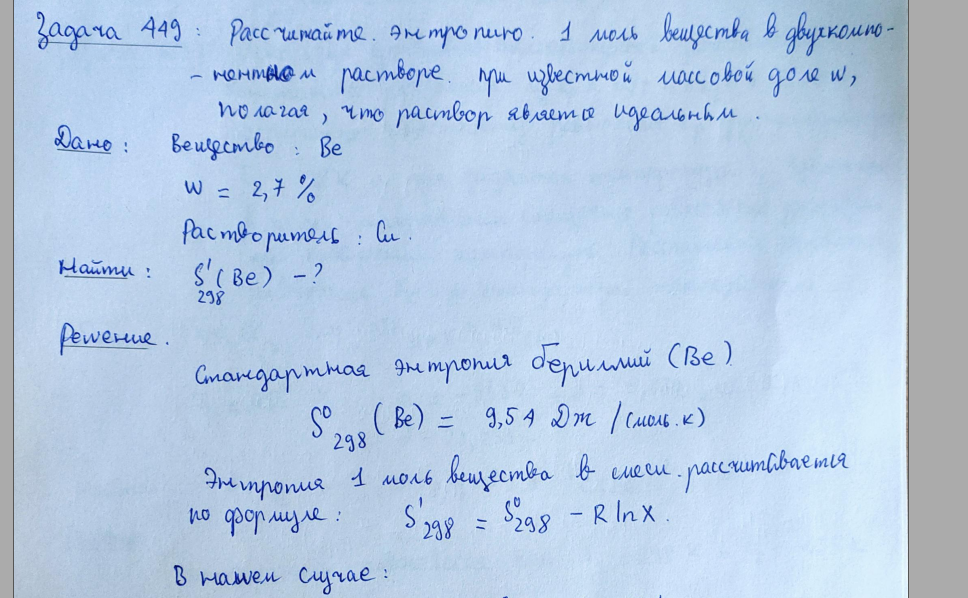 Задача 449 : Рассчитайте. энтропию. 1 моль вещества в двухкомпо-
- нентном растворе. при известной массовой доле w,
полагая, что раствор является идеальным.
Дано: Вещество : Be
w = 2,7 %
Растворитель : Cu.
Найти: S'298 (Be) - ?
Решение.
Стандартная энтропия бериллий (Be)
S⁰298 (Be) = 9,54 Дж /(моль.к)
Энтропия 1 моль вещества в смеси.рассчитывается
по формуле: S'298 = S⁰298 - R ln X.
В нашем случае: